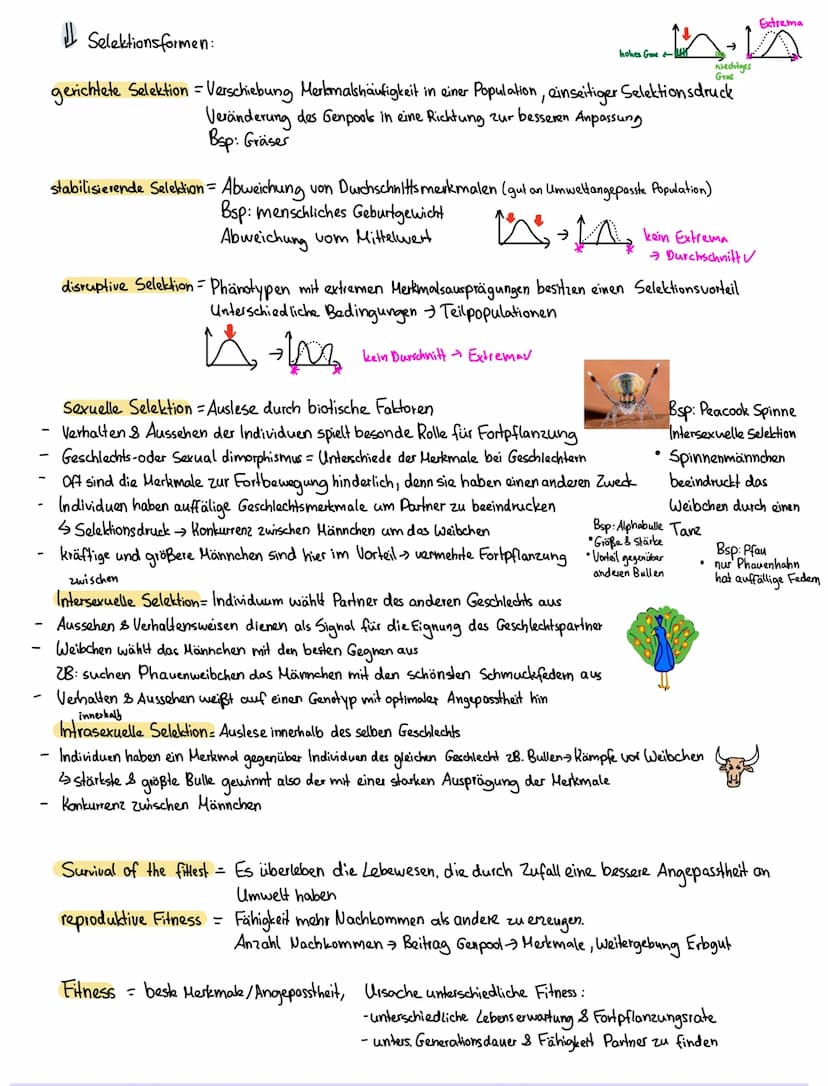 Selektionsformen:
Extrema
hohes Gras
niedriges
Gras
gerichtete Selektion = Verschiebung Merkmalshäufigkeit in einer Population, einseitiger Selektionsdruck
Veränderung des Genpools in eine Richtung zur besseren Anpassung
Bsp: Gräser
stabilisierende Selektion = Abweichung von Durchschnittsmerkmalen (gut an Umweltangepasste Population)
Bsp: menschliches Geburtgewicht
Abweichung vom Mittelwert
kein Extrema
→ Durchschnitt ✓
disruptive Selektion = Phänotypen mit extremen Merkmalsausprägungen besitzen einen Selektionsvorteil
Unterschiedliche Bedingungen → Teilpopulationen
kein Durschnitt → Extrema ✓
Sexuelle Selektion = Auslese durch biotische Faktoren
- Verhalten & Aussehen der Individuen spielt besonde Rolle für Fortpflanzung
- Geschlechts-oder Sexual dimorphismus = Unterschiede der Merkmale bei Geschlechtern
- Oft sind die Merkmale zur Fortbewegung hinderlich, denn sie haben einen anderen Zweck
- Individuen haben auffälige Geschlechtsmerkmale um Partner zu beeindrucken
↳ Selektionsdruck → Konkurrenz zwischen Männchen um das Weibchen
- kräftige und größere Männchen sind hier im Vorteil → vermehrte Fortpflanzung
Bsp: Peacook Spinne
Intersexuelle Selektion
• Spinnenmännchen
beeindruckt das
Weibchen durch einen
Tanz
Bsp: Alphabulle
• Größe & Stärke
• Vorteil gegenüber
anderen Bullen
Bsp: Pfau
• nur Phauenhahn
hat auffällige Federn
zwischen
Intersexuelle Selektion = Individuum wählt Partner des anderen Geschlechts aus
- Aussehen & Verhaltensweisen dienen als Signal für die Eignung das Geschlechtspartner
- Weibchen wählt das Männchen mit den besten Gegnen aus
ZB: suchen Phauenweibchen das Männchen mit den schönsten Schmuckfedern aus
- Verhalten & Aussehen weißt auf einen Genotyp mit optimaler Angepasstheit hin
innerhalb
Intrasexuelle Selektion = Auslese innerhalb des selben Geschlechts
- Individuen haben ein Merkmal gegenüber Individuen des gleichen Geschlecht zB. Bullen → Kämpfe vor Weibchen
↳ stärkste & größte Bulle gewinnt also der mit einer starken Ausprägung der Merkmale
- Konkurrenz zwischen Männchen
Survival of the fittest = Es überleben die Lebewesen, die durch Zufall eine bessere Angepasstheit an
Umwelt haben
reproduktive Fitness = Fähigkeit mehr Nachkommen als andere zu erzeugen.
Anzahl Nachkommen → Beitrag Genpool → Merkmale, Weitergebung Erbgut
Fitness = beste Merkmale/Angepasstheit, Ursache unterschiedliche Fitness:
- unterschiedliche Lebenserwartung & Fortpflanzungsrate
- unters. Generationsdauer & Fähigkeit Partner zu finden